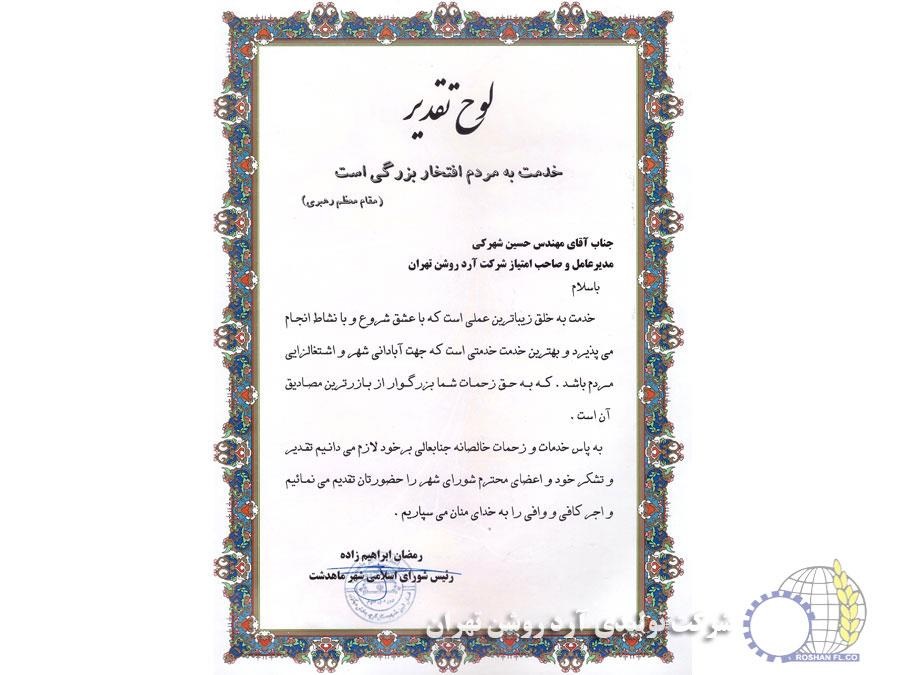 لوح تقدیر
خدمت به مردم افتخار بزرگی است
(مقام معظم رهبری)
جناب آقای مهندس حسین شهرکی
مدیرعامل و صاحب امتیاز شرکت آرد روشن تهران
باسلام
خدمت به خلق زیباترین عملی است که با عشق شروع و با نشاط انجام
می پذیرد و بهترین خدمت خدمتی است که جهت آبادانی شهر و اشتغالزایی
مردم باشد . که به حق زحمات شما بزرگوار از بارزترین مصادیق
آن است .
به پاس خدمات و زحمات خالصانه جنابعالی برخود لازم می دانیم تقدیر
و تشکر خود و اعضای محترم شورای شهر را حضورتان تقدیم می نمائیم
و اجر کافی و وافی را به خدای منان می سپاریم .
رمضان ابراهیم زاده
رئیس شورای اسلامی شهر ماهدشت
شرکت تولیدی آرد روشن تهران
ROSHAN FL.CO